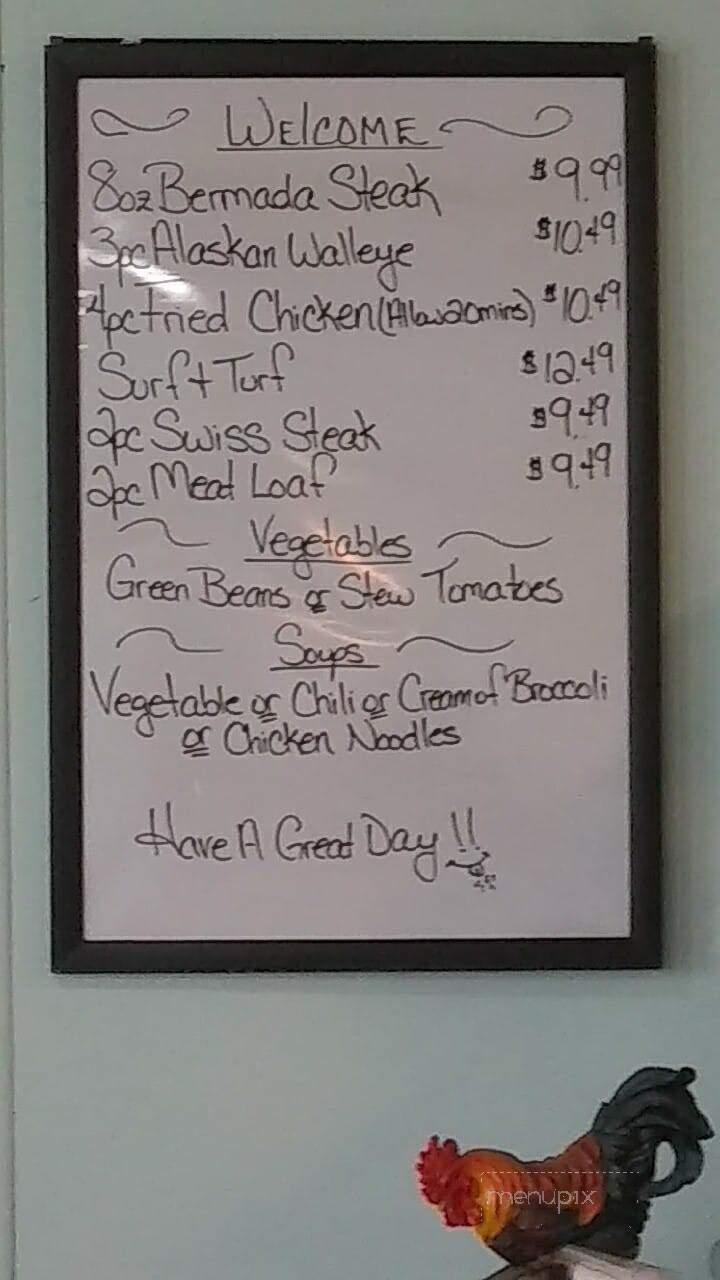 WElCOME
8oz Bermada Steak $9.99
3pc Alaskan Walleye $10.49
4pc Fried Chicken (Allow 20 mins) $10.49
Surf + Turf $12.49
2pc Swiss Steak $9.49
2pc Meat Loaf $9.49
Vegetables
Green Beans or Stew Tomatoes
Soups
Vegetable or Chili or Cream of Broccoli
or Chicken Noodles
Have A Great Day!!
menupix